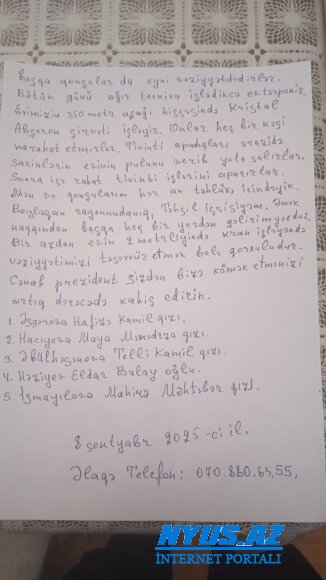 Başqa qonşular da eyni vəziyyətdədirlər.
Bütün günü ağır texnika işlədikcə ev tərpənir.
Evimizin 350 metr aşağı hissəsində Kristal
Abşeron şirkəti işləyir. Onlar heç bir kəsi
narahat etmirlər. Tikinti apardıqları ərazidə
sakinlərin evinin pulunu verib yola salırlar.
Sonra isə rahat tikinti işlərini aparırlar.
Mən və qonşularım hər an təhlükə içindəyik.
Beyləqan rayonundanıq, Təhsil işçisiyəm. Əmək
haqqından başqa heç bir yerdən gəlirim yoxdur.
Bir azdan evin 2 metrliyində kran işləyəndə
vəziyyətimizi təsəvvür etmək belə qorxuludur.
Cənab prezident Sizdən bizə kömək etmənizi
artıq dərəcədə xahiş edirik.
1. Əsgərova Hafizə Kamil qızı.
2. Hacıyeva Maya Məmədrza qızı.
3. Əbülhəsənova Telli Kamil qızı.
4. Həziyev Eldar Balay oğlu.
5. İsmayılova Mahirə Möhtəbər qızı.
8 sentyabr 2025-ci il.
Əlaqə Telefon: 070.880.63,55.
NYUS.AZ
İNTERNET PORTALI